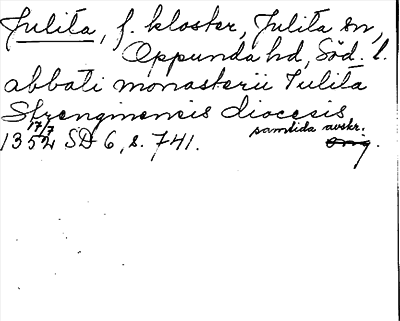 Julita, f. kloster, Julita sn,
Oppunda hd, Söd. l.
abbati monasterii Iulita
Strenginensis diocesis
1352 17/7 SD 6, s. 741. samtida avskr.
orig.